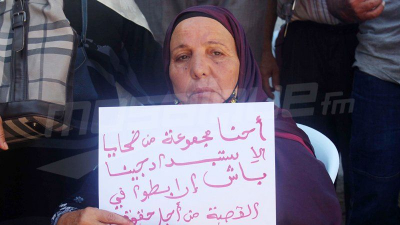 أحنا مجموعة من ضحايا
الاستبداد جينا
باش إرابطوا في
القصبة من أجل حقوق
mosaique fm